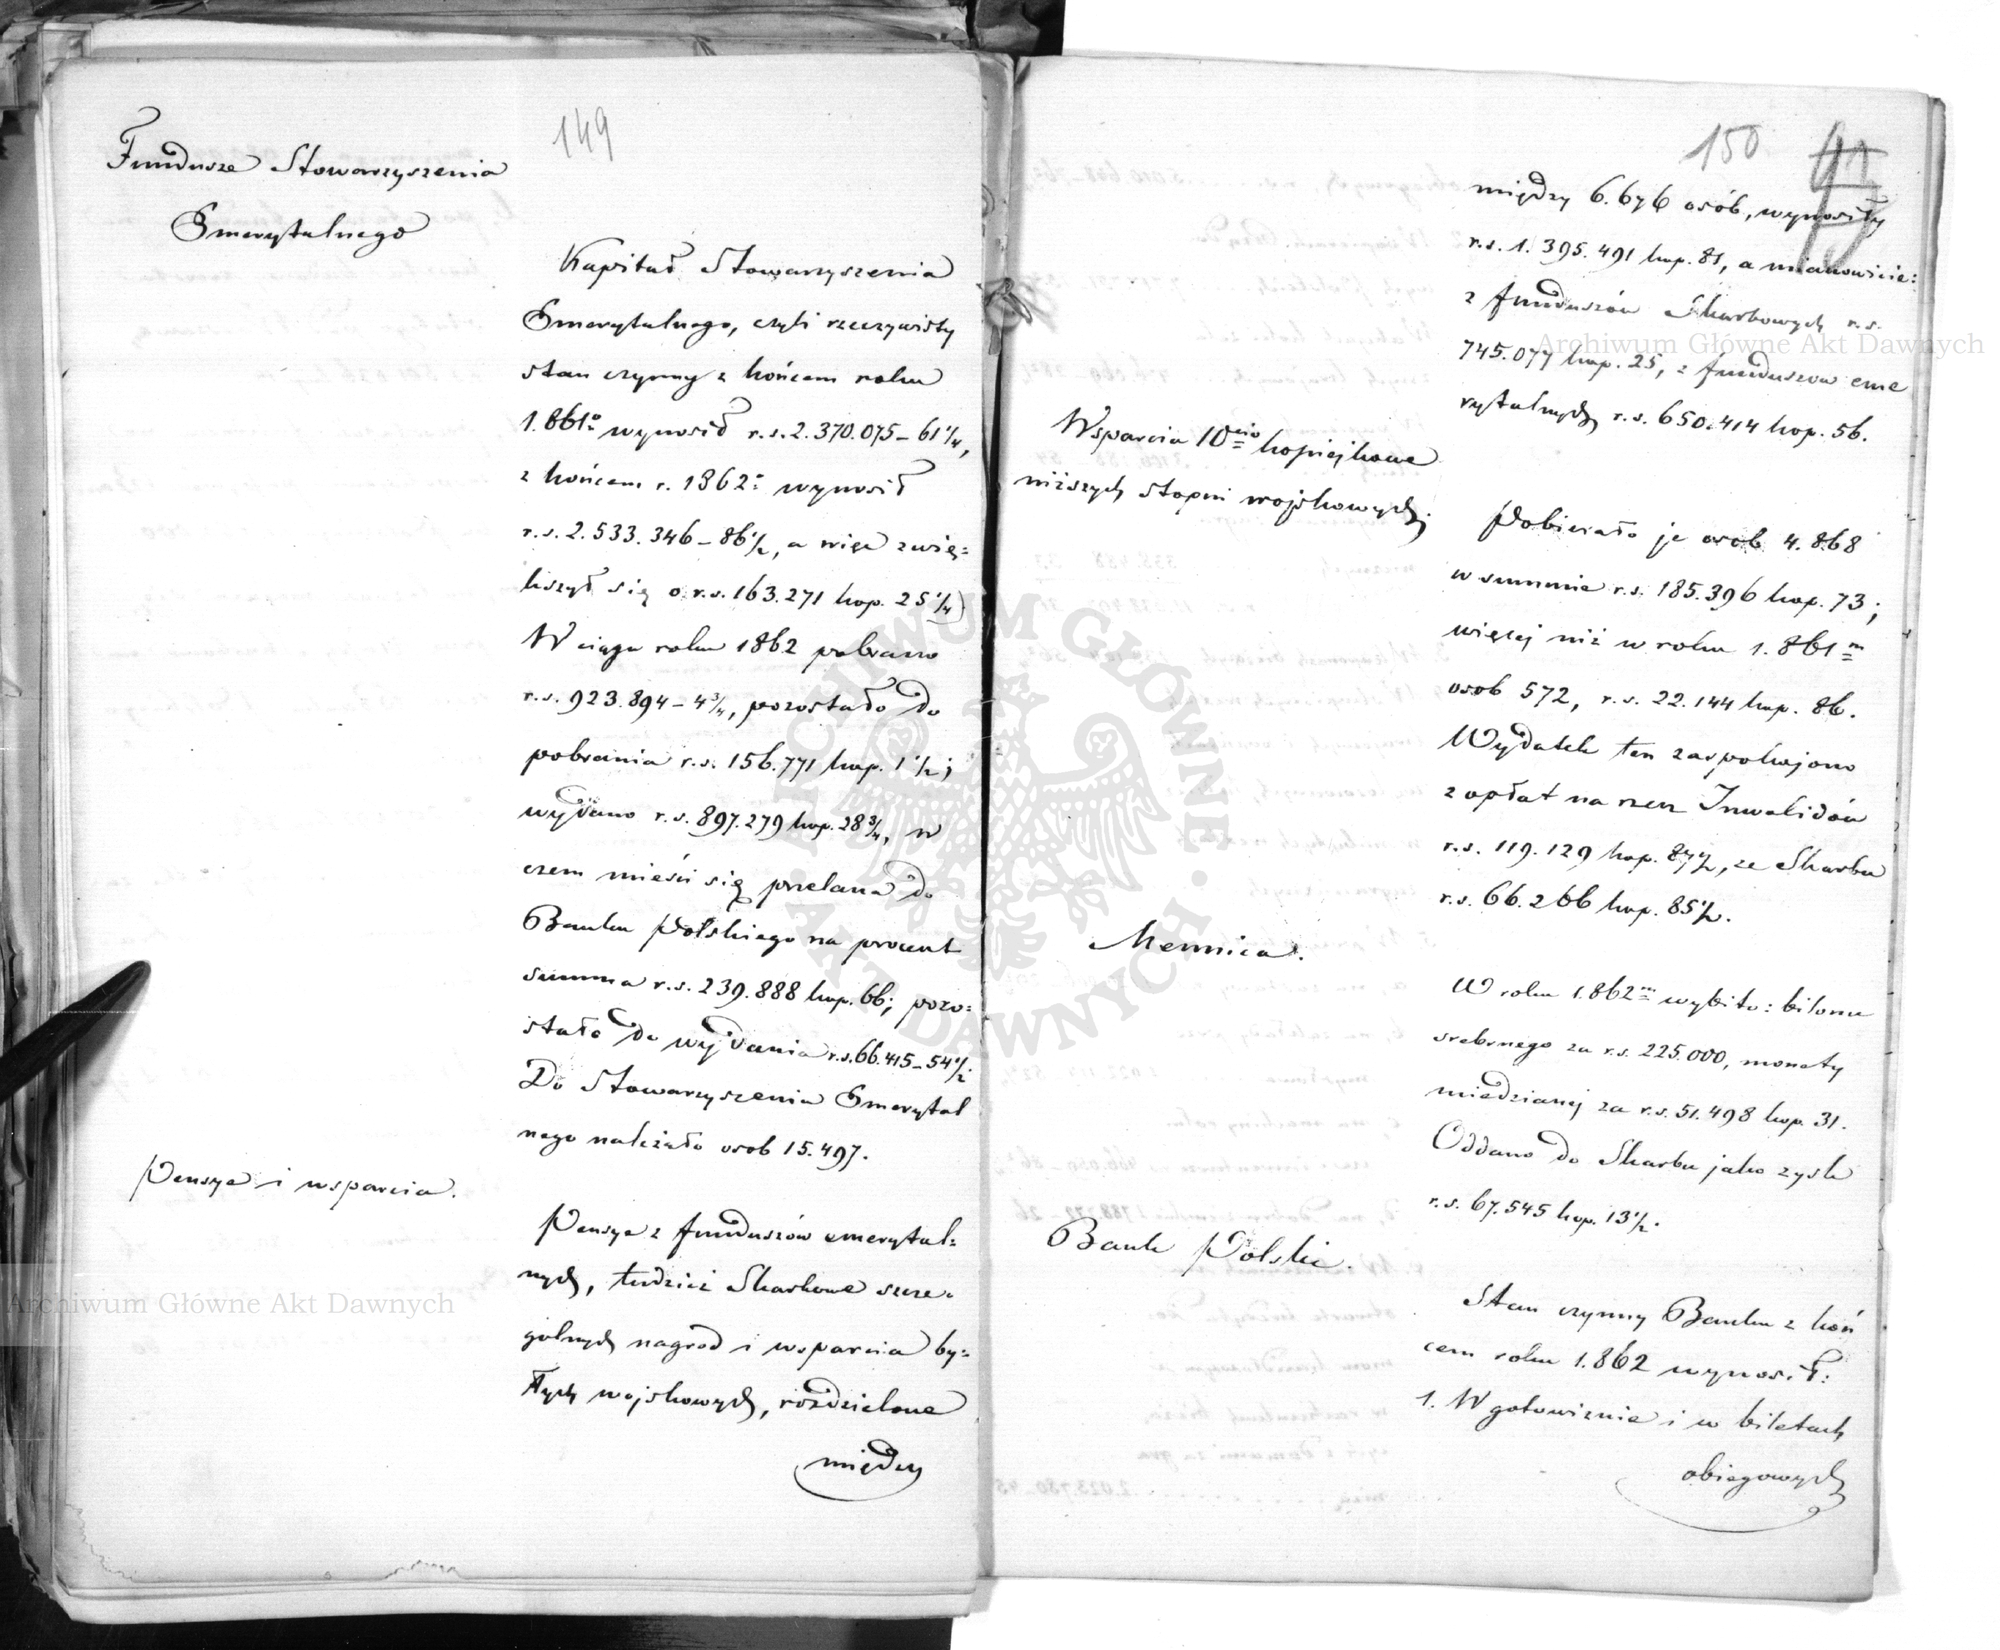 149
Fundusze Stowarzyszenia
Emerytalnego
Kapitał Stowarzyszenia
Emerytalnego, czyli rzeczywisty
stan czynny z końcem roku
1.861º wynosił r.s. 2.370.075 – 61 1/4,
z końcem r. 1862º wynosił
r.s. 2.533.346 – 86 1/2, a więc zwię=
kszył się o r.s. 163.271 kop. 25 1/4)
W ciągu roku 1862 pobrano
r.s. 923.894 – 4 3/4, pozostało do
pobrania r.s. 156.771 kop. 1 1/2;
wydano r.s. 897.279 kop. 28 3/4, w
czem mieści się przelana do
Banku Polskiego na procent
summa r.s. 239.888 kop. 66; pozo=
stało do wydania r.s. 66.415 – 54 1/2.
Do Stowarzyszenia Emerytal
nego należało osob 15.497.
Pensye i wsparcia.
Pensye z funduszów emerytal=
nych, tudzież Skarbowe szcze=
gólnych nagrod i wsparcia by=
łych wojskowych, rozdzielone
między
150
między 6.676 osób, wynosiły
r.s. 1.395.491 kop. 81, a mianowicie:
z funduszów Skarbowych r.s.
745.077 kop. 25, z funduszow eme
rytalnych r.s. 650.414 kop. 56.
Wsparcia 10cio kopiejkowe
niższych stopni wojskowych;
Pobierało je osob 4.868
w summie r.s. 185.396 kop. 73;
więcej niż w roku 1.861m
osob 572, r.s. 22.144 kop. 86.
Wydatek ten zaspokojono
z opłat na rzecz Inwalidów
r.s. 119.129 kop. 87 1/2, ze Skarbu
r.s. 66.266 kop. 85 1/2.
Mennica.
W roku 1.862m wybito: bilonu
srebrnego za r.s. 225.000, monety
miedzianej za r.s. 51.498 kop. 31.
Oddano do Skarbu jako zysk
r.s. 67.545 kop. 13 1/2.
Bank Polski.
Stan czynny Banku z koń
cem roku 1.862 wynosił:
1. W gotowiznie i w biletach
obiegowych
Archiwum Główne Akt Dawnych
Archiwum Główne Akt Dawnych
ARCHIWUM GŁÓWNE · AKT DAWNYCH ·